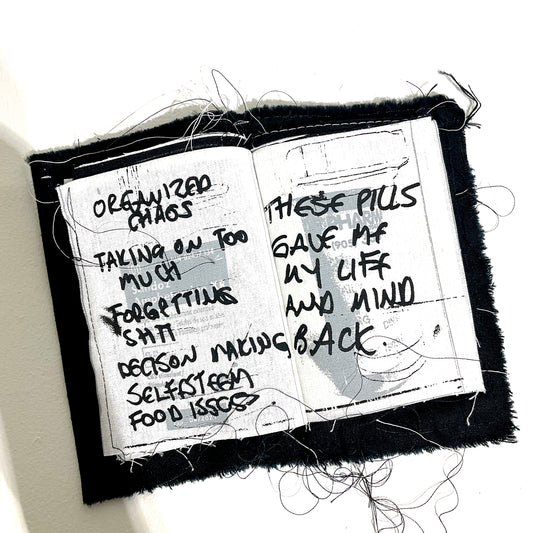 ORGANIZED
CHAOS
TAKING ON TOO
MUCH
FORGETTING
SHIT
DECISON MAKING
SELFESTEEM
FOOD ISSUES
THESE PILLS
GAVE ME
MY LIFE
AND MIND
BACK
PHARM
1905